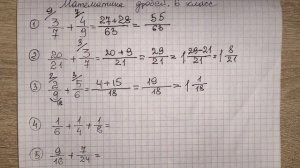 Математика дробей. 6 класс
① 9 3/7 + 7 4/9 = 27+28/63 = 55/63
② 20/21 + 3 3/7 = 20+9/21 = 29/21 = 1 29-21/21 = 1 8/21
③ 2 2/9 + 3 5/6 = 4+15/18 = 19/18 = 1 1/18
④ 1/6 + 1/4 + 1/8 =
⑤ 9/16 + 7/24 =